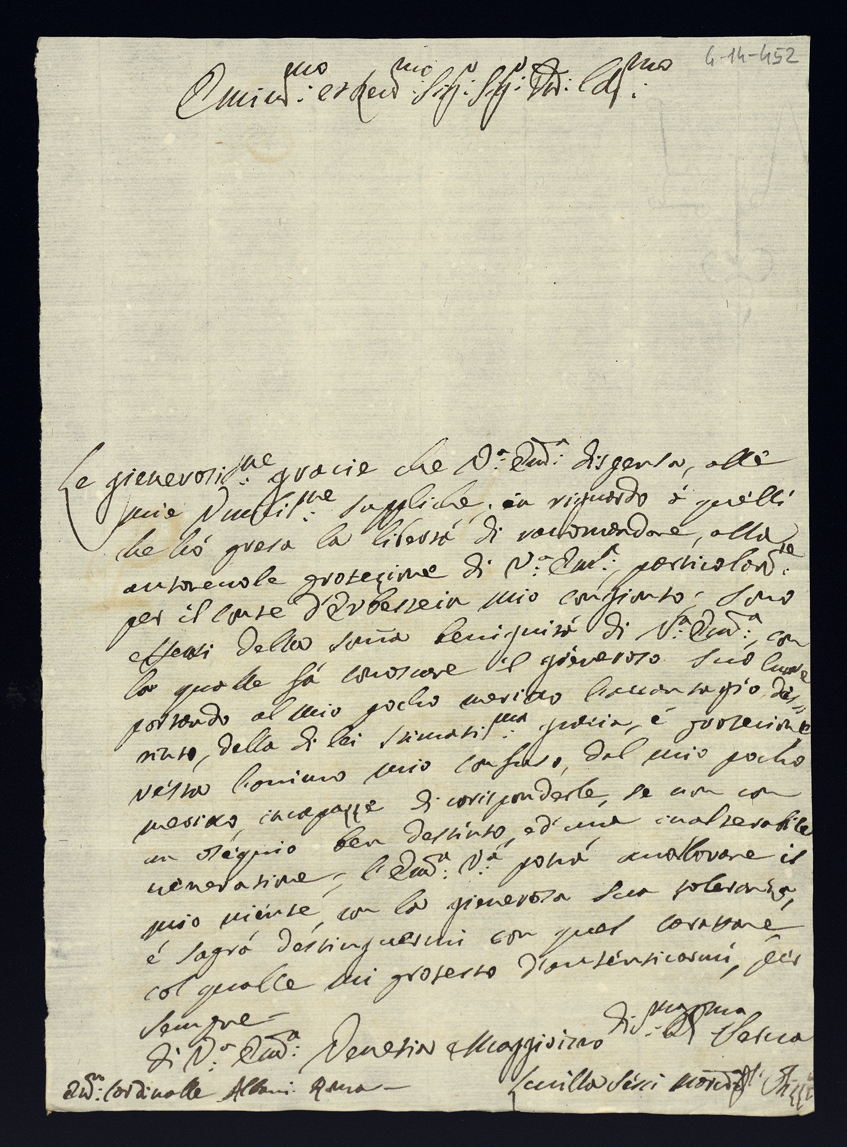 4-14-452
Emin:mo e Rev:mo Sig: Sig: P̃ro: Col:mo
Le gienerosi:me gracie che V:a Em:a dispensa, alle
mie Vmili:me suppliche, in riguardo à quelli
che hò presa la libertà di racomandare, alla
autorevole protezione di V:a Em:a, particolar:te
per il Conte d'Erbestein mio congionto; sono
effetti della soma benignità di V:a Em:a, con
la qualle fà conoscere il gieneroso suo
portando al mio pocho merito
della di lei stimati:ma gracia, è protecione
l'animo mio confuso, dal mio pocho
merito, incapazze di corisponderle, se non con
un osequio ben destinto, ed'una inalterabile
veneracione; l'Em:a V:a potrà avalorare il
mio niente, con la gienerosa sua toleranza,
è saprà destinguermi con quel carattere
col qualle mi protesto d'autenticarmi, per
sempre
di V:a Em:a Venetia Maggio di Serva
Em: Cardinalle Albani Roma